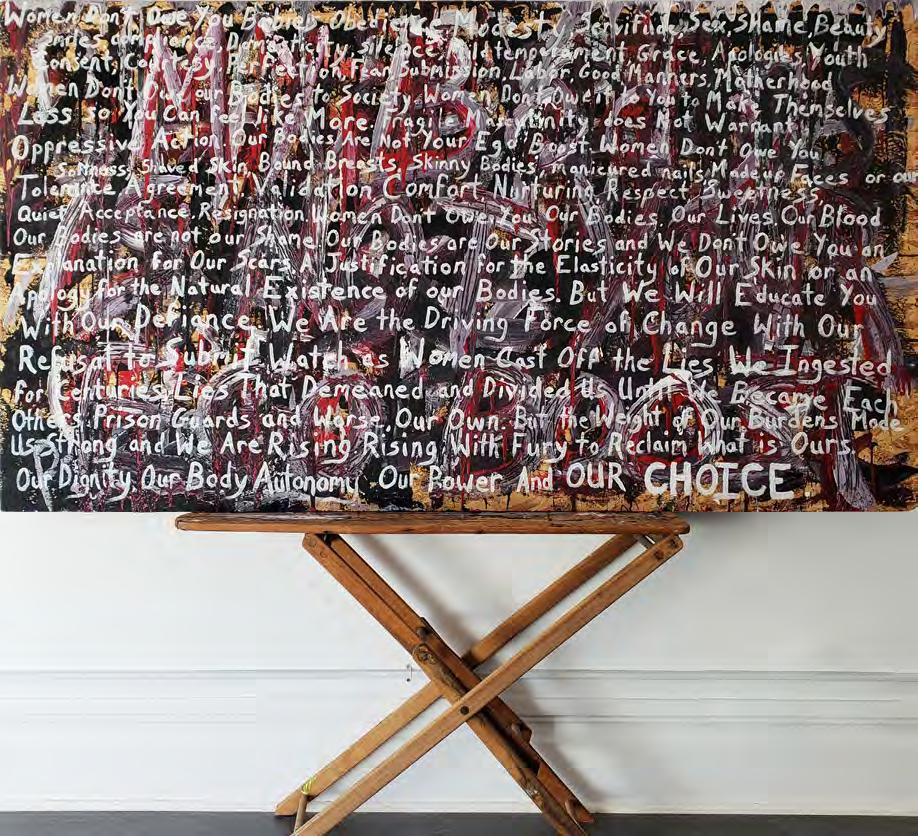 Women Don't Owe You Babies Obedience Modesty Servitude, Sex, Shame, Beauty
Smiles Compliance, Domesticity, Silence, Mild temperament Grace, Apologies, Youth
Consent, Courtesy Perfection Fear Submission, Labor, Good Manners, Motherhood
Women Don't Owe our Bodies to Society, Women Don't Owe it to You to Make Themselves
Less so You Can feel like More Fragile Masculinity does Not Warrant
Oppressive Action Our Bodies Are Not Your Ego Boost. Women Don't Owe You
Softness, Shaved Skin, Bound Breasts Skinny Bodies, manicured nails Made up Faces or our
Tolerance Agreement Validation Comfort Nurturing Respect Sweetness,
Quiet Acceptance, Resignation. Women Dont Owe You Our Bodies Our Lives Our Blood
Our Bodies are not our Shame Our Bodies are Our Stories and We Don't Owe You an
Explanation for Our Scars A Justification for the Elasticity of Our Skin or an
Apology for the Natural Existence of our Bodies. But We Will Educate You
With Our Defiance We Are the Driving Force of Change With Our
Refusal to Submit Watch as Women Cast Off the Lies We Ingested
for Centuries, Lies That Demeaned and Divided Us Until We Became Each
Others Prison Guards and Worse, Our Own. But the Weight of Our Burdens Made
Us Strong and We Are Rising Rising With Fury to Reclaim What is Ours
Our Dignity Our Body Autonomy Our Power And OUR CHOICE.